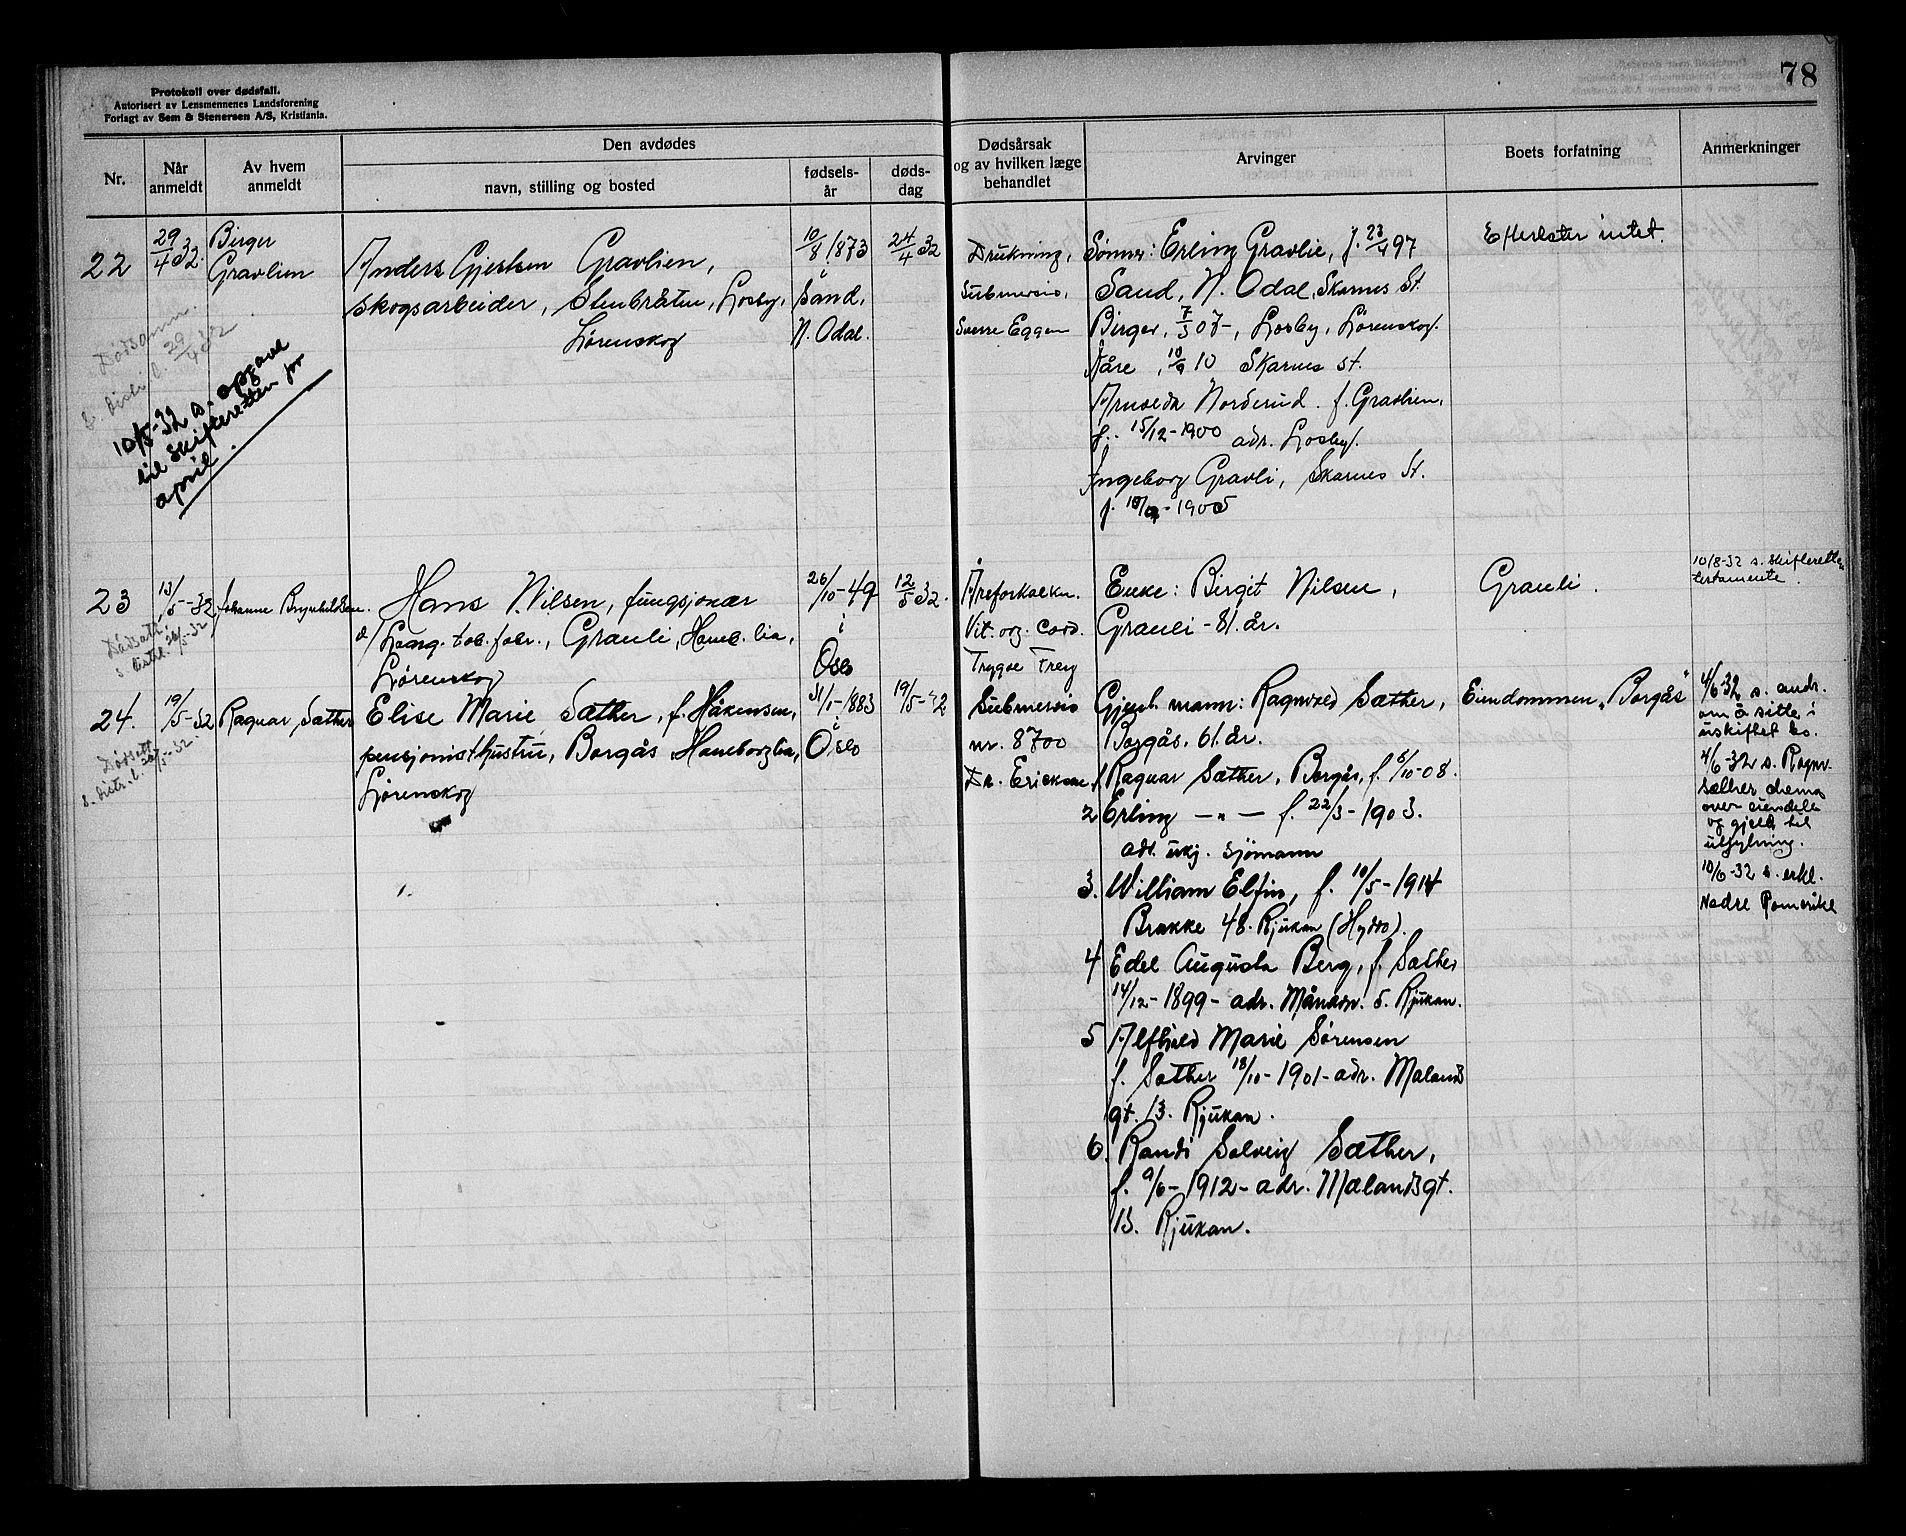 78
Protokoll over dødsfall.
Autorisert av Lensmennenes Landsforening
Forlagt av Sem & Stenersen A/S, Kristiania.
Nr.
Når anmeldt
Av hvem anmeldt
Den avdødes
navn, stilling og bosted
fødsels-år
døds-dag
Dødsårsak og av hvilken læge behandlet
Arvinger
Boets forfatning
Anmerkninger
22
29/4 32.
Birger
Gravlien
Anders Gjertsen Gravlien,
skogsarbeider, Stenbråten, Losby,
Lørenskog
10/8 1873
Sand,
N. Odal.
24/4 32
Drukning,
Submersio,
Sverre Eggen
Sønner: Erling Gravlie, f. 23/4 97
Sand, N. Odal, Skarnes St.
Birger, 7/5 07, Losby, Lørenskog.
Kåre, 10/9 10 Skarnes st.
Norderud f. Gravlien,
f. 15/12-1900 adr. Losby.
Ingeborg Gravli, Skarnes St.
f. -1905
Efterlater intet.
Dødsanm.
s. distr.l. 29/4 32
10/5-32 s. opgave
til skifteretten for
april.
23
13/5-32
Johanne
Hans Nilsen, fungsjonær
v/ Lang. tob.fabr., Grauli, Hamb.lia,
Lørenskog
26/10-49
i
Oslo
12/5 32.
Åreforkalkn.
Vit. org. cord.
Trygve Frey
Enke: Birgit Nilsen,
Grauli - 81 år.
Grauli.
10/8-32 s. skifteretten
testamente.
Dødsatt.
s. distr.l. 20/5-32
24.
19/5-32
Ragnar Sæther
Elise Marie Sæther, f. Håkensen,
pensjonisthustru, Borgås Hamborglia,
Lørenskog
31/5-1883
i
Oslo
19/5-32
Submersio
nr. 8700
Dr. Ericksen
Gjenl. mann: Ragnvald Sæther,
Borgås, 61 år.
1. Ragnar Sæther, Borgås, f. 5/10-08.
2 Erling — " — f. 22/3-1903.
adr. ukj. sjømann
3. William Elfin, f. 10/5-1914
Brakke 48. Rjukan (Hydro).
4 Edel Augusta Berg, f. Sæther
14/12-1899- adr. 5. Rjukan.
5 Alfhild Marie Sørensen
f. Sæther 18/10-1901- adr. Mælands
gt. 13. Rjukan.
6. Randi Solveig Sæther,
f. 9/6-1912- adr. Mælandsgt.
13. Rjukan.
Eiendommen „Borgås"
4/6-32 s. andr.
om å sitte i
uskiftet bo.
4/6-32 s. Ragnv.
Sæther skema
over eiendele
og gjeld til
utfylning.
10/6-32 s. erkl.
Nedre Romerike
Dødsatt.
s. distr.l. 20/5-32.